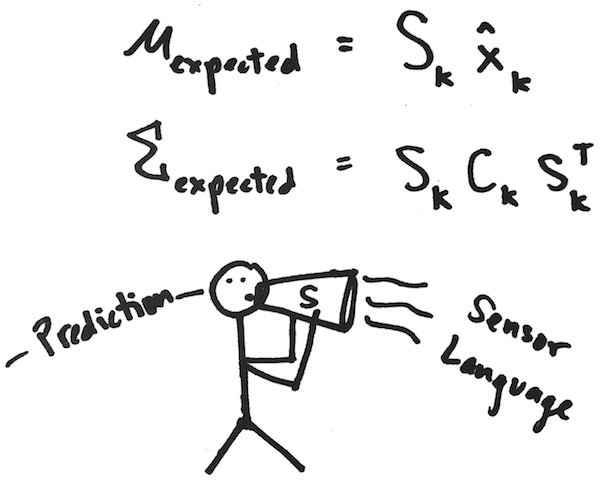 μexpected = Sk x̂k
Σexpected = Sk Ck SkT
Prediction
S
Sensor
Language